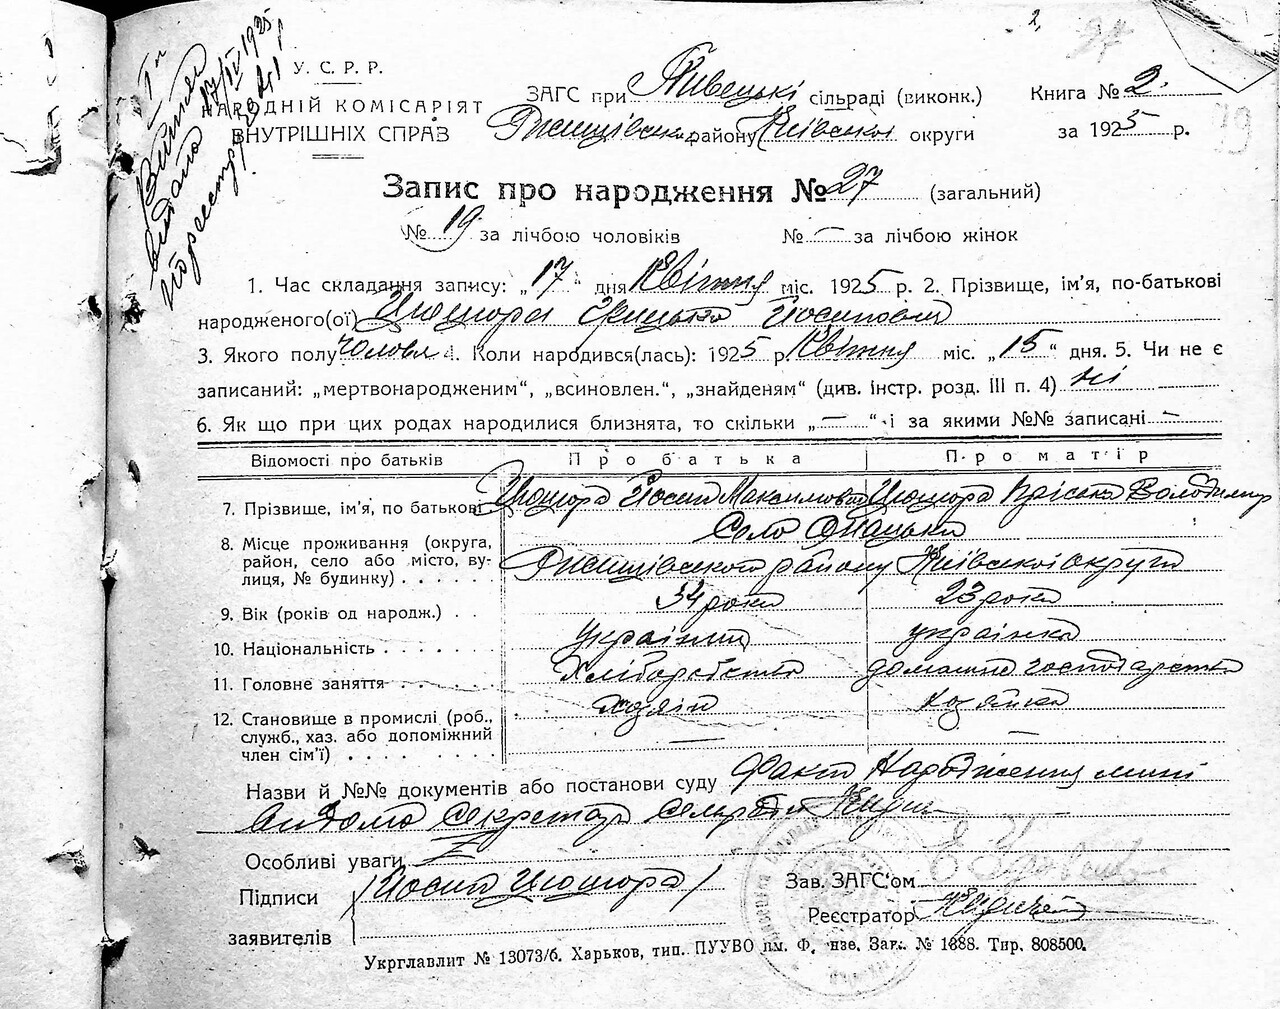 2.
У. С. Р. Р.
НАРОДНІЙ КОМІСАРІЯТ
ВНУТРІШНІХ СПРАВ
Витяг
видано
17/IV 1935
по реєстру
ЗАГС при Пивецькі сільраді (виконк.)
Ржищівськ. району Київської округи
Книга № 2.
за 1925 р.
19
Запис про народження № 27 (загальний)
№ 19 за лічбою чоловіків № — за лічбою жінок
1. Час складання запису: „17“ дня Квітня міс. 1925 р. 2. Прізвище, ім’я, по-батькові
народженого(ої) Цюцюра Грицько Йосипович
3. Якого полу Чоловл 4. Коли народився(лась): 1925 р. Квітня міс. „15“ дня. 5. Чи не є
записаний: „мертвонародженим“, „всиновлен.“, „знайденям“ (див. інстр. розд. III п. 4) ні
6. Як що при цих родах народилися близнята, то скільки „—“ і за якими №№ записані —
Відомості про батьків Про батька Про матір
7. Прізвище, ім’я, по батькові Цюцюра Йосип Максимович Цюцюра Пріська Володимир
8. Місце проживання (округа, район, село або місто, вулиця, № будинку) Село
Ржищівського району Київської округи
9. Вік (років од народж.) 34 роки 23 роки
10. Національність українець українка
11. Головне заняття Хліборобство домашнє господарство
12. Становище в промислі (роб., служб., хаз. або допоміжний член сім’ї) хозяін хозяйка
Назви й №№ документів або постанови суду Факт Народження мині
відомо Секретар сельради
Особливі уваги Z
Підписи заявителів Йосип Цюцюра
Зав. ЗАГС’ом
Реєстратор
Укрглавлит № 13073/6. Харьков, тип. ПУУВО им. Ф. Энзе. Зак. № 1688. Тир. 808500.